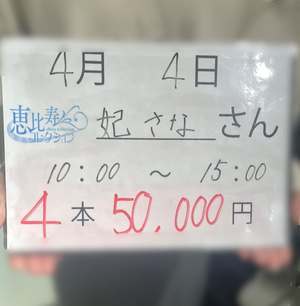 4月 4日
恵比寿
コレクション
妃 さな さん
10:00 ～ 15:00
4本 50.000円